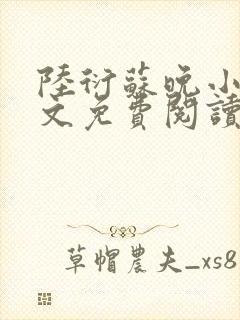 陸衍蘇晚小
文免費閱讀
草帽農夫_xs8